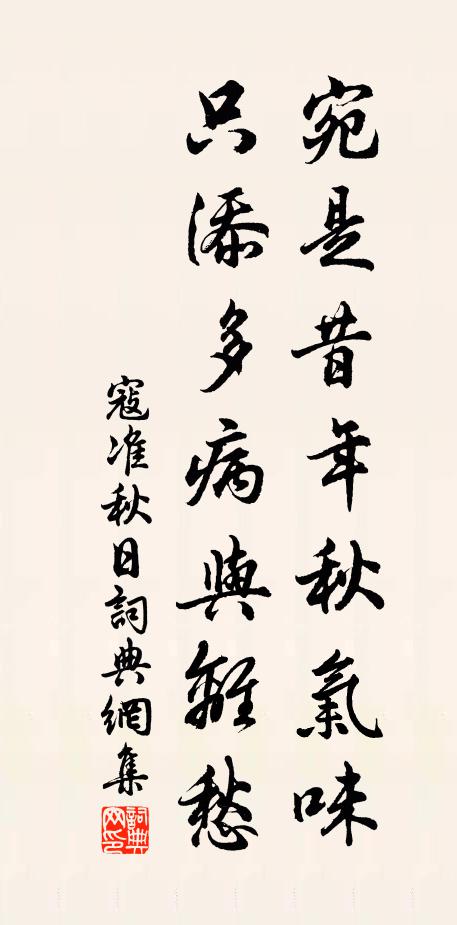 宛是昔年秋氣味
只添多病與離愁
寇准秋日詞典網集
詞典网印